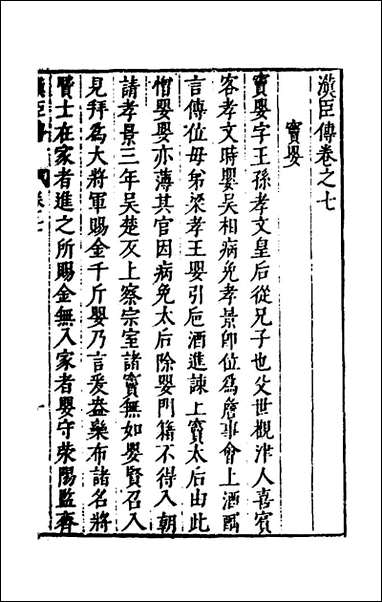 漢臣傳卷之七
竇嬰
竇嬰字王孫孝文皇后從兄子也父世觀津人喜賓
客孝文時嬰吳相病免孝景即位為詹事會上酒酣
言傳位毋弟梁孝王嬰引巵酒進諫上竇太后由此
憎嬰嬰亦薄其官因病免太后除嬰門籍不得入朝
請孝景三年吳楚反上察宗室諸竇無如嬰賢召入
見拜爲大將軍賜金千斤嬰乃言爰盎欒布諸名將
賢士在家者進之所賜金無入家者嬰守滎陽監齊